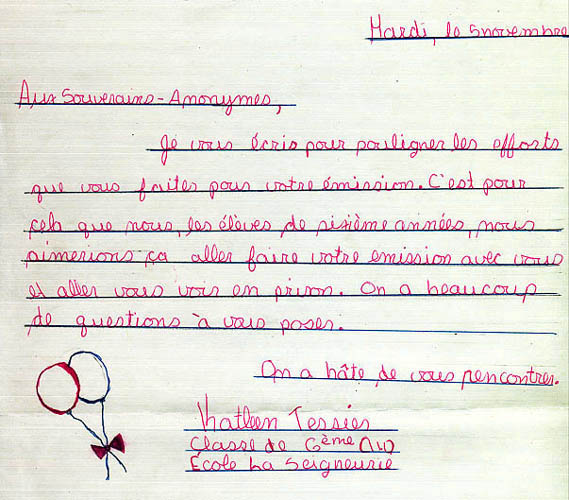 Mardi, le 5 novembre
Aux Souverains-Anonymes,
Je vous écris pour souligner les efforts
que vous faites pour votre émission. C'est pour
cela que nous, les élèves de sixième années, nous
aimerions ça aller faire votre emission avec vous
et aller vous voir en prison. On a beaucoup
de questions à vous poser.
On a hâte de vous rencontrer.
Khatleen Tessier
Classe de 6ème (14)
École La Seigneurie